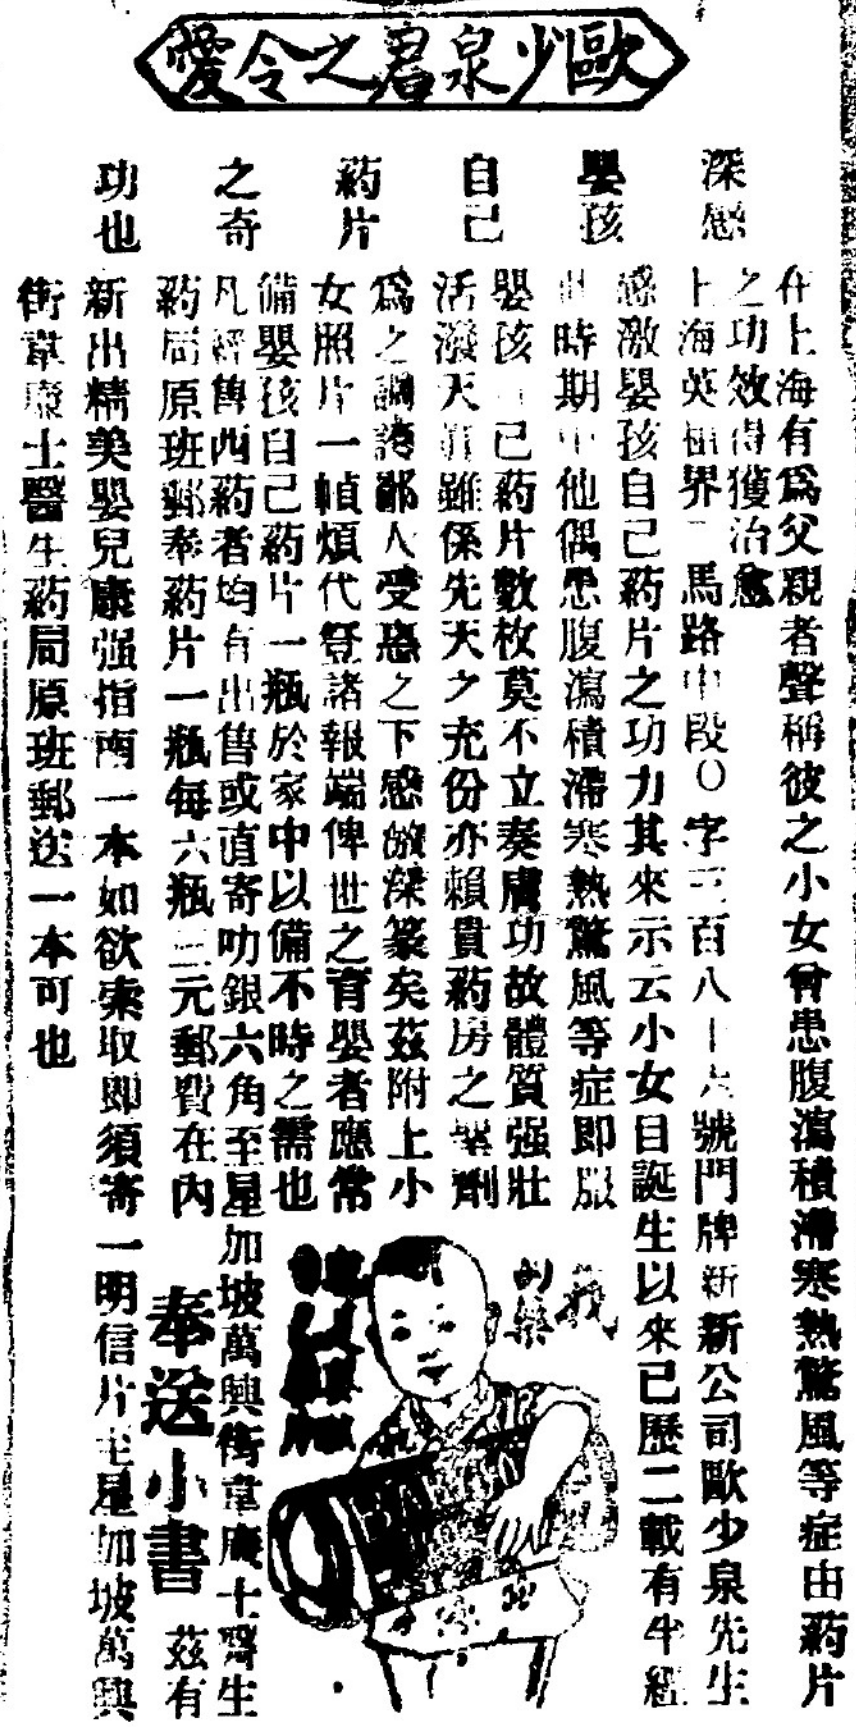 歐少泉君之令愛
深感
嬰孩
自己
藥片
之奇
功也
在上海有爲父親者聲稱彼之小女曾患腹瀉積滯寒熱驚風等症由葯片
之功效得獲治愈
上海英租界二馬路中段〇字三百八十六號門牌新新公司歐少泉先生
感激嬰孩自己葯片之功力其來示云小女自誕生以來已歷二載有半經
此時期中他偶患腹瀉積滯寒熱驚風等症即服
嬰孩自己葯片數枚莫不立奏膚功故體質强壯
活潑天眞雖係先天之充份亦賴貴葯房之聖劑
爲之調護鄙人受惠之下感激深篆矣茲附上小
女照片一幀煩代登諸報端俾世之育嬰者應常
備嬰孩自己葯片一瓶於家中以備不時之需也
凡經售西葯者均有出售或直寄叻銀六角至星加坡萬興街韋廉士醫生
葯局原班郵奉葯片一瓶每六瓶三元郵費在內
奉送小書
茲有
新出精美嬰兒康强指南一本如欲索取即須寄一明信片至星加坡萬興
街韋廉士醫生葯局原班郵送一本可也